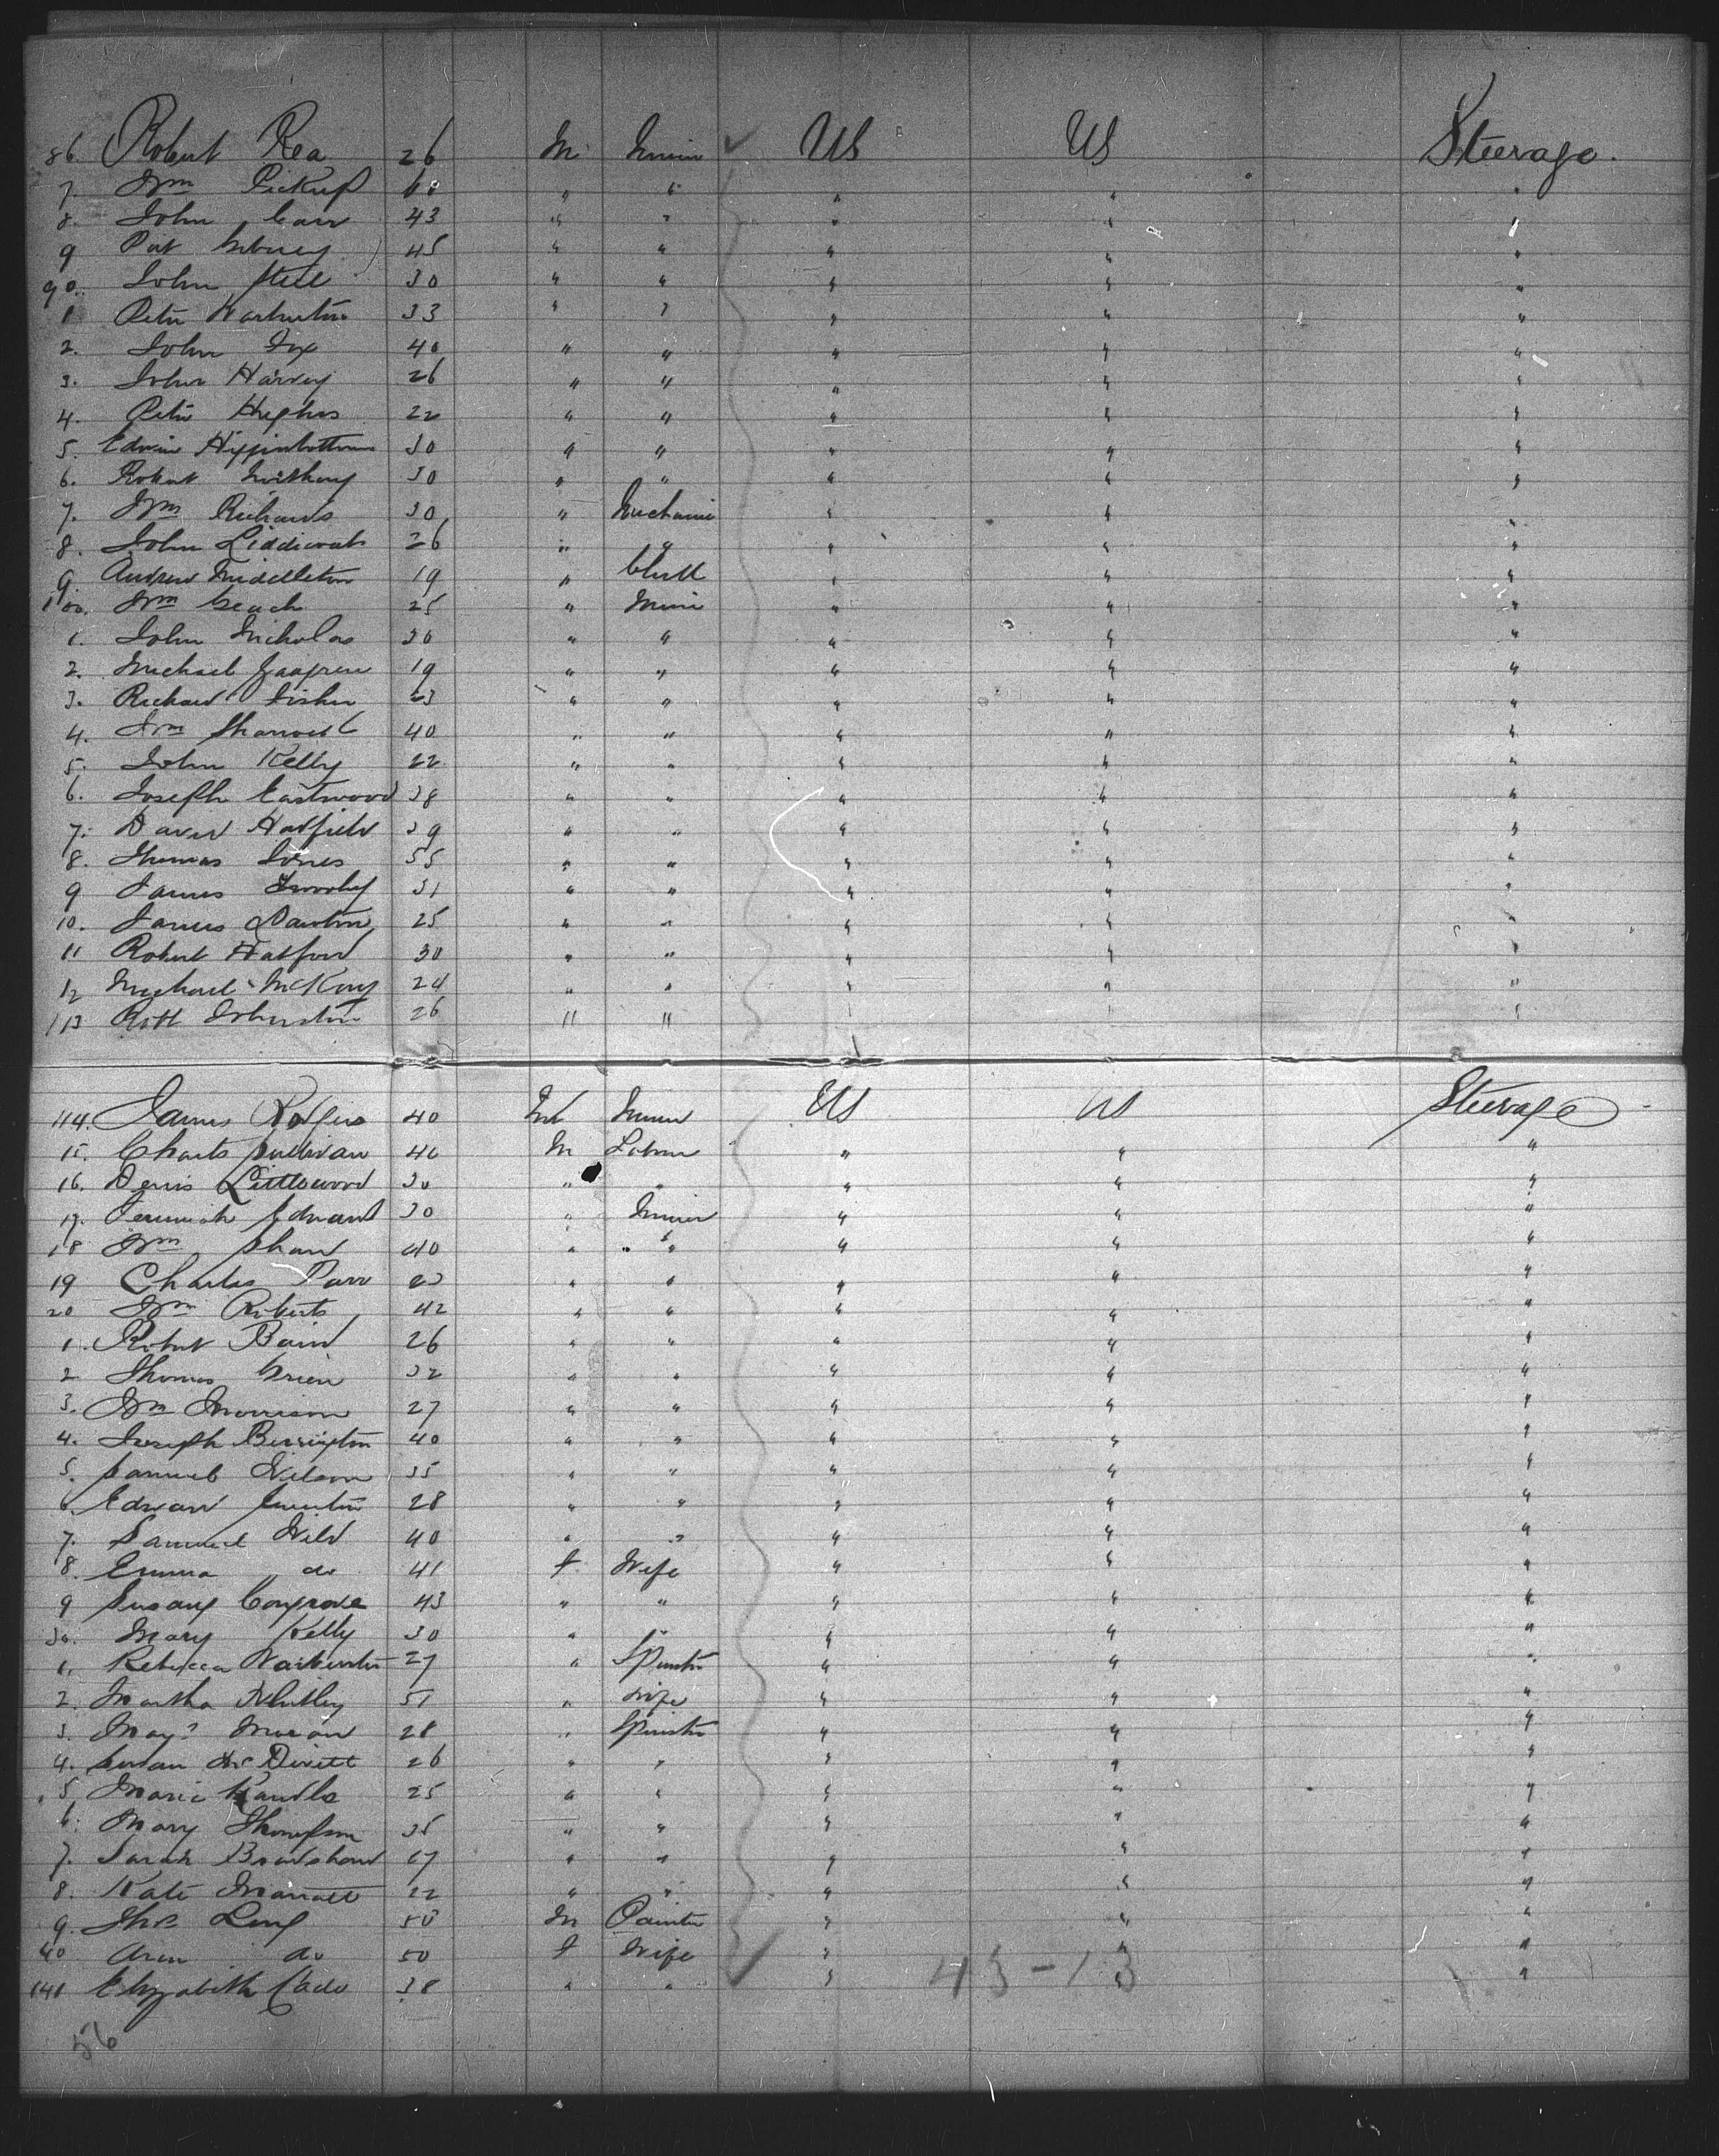 86. Robert Rea 26 M Miner US US Steerage.
7. Wm Pickup 60 " " " " "
8. John Carr 43 " " " " "
9 Pat 45 " " " " "
90. John Steel 30 " " " " "
1 Peter Warburton 33 " " " " "
2. John Fox 40 " " " " "
3. John Harvey 26 " " " " "
4. Peter Hughes 22 " " " " "
5. Edwin Higginbottom 30 " " " " "
6. Robert 30 " " " " "
7. Wm Richards 30 " Mechanic " " "
8. John Liddicoat 26 " " " " "
9. Andrew Middleton 19 " Clerk " " "
100. Wm Geach 25 " Miner " " "
1. John Nicholas 30 " " " " "
2. Michael 19 " " " " "
3. Richard Fisher 23 " " " " "
4. Wm 40 " " " " "
5. John Kelly 22 " " " " "
6. Joseph Eastwood 38 " " " " "
7. David Hatfield 39 " " " " "
8. Thomas Jones 55 " " " " "
9 James 31 " " " " "
10. James Dawton 25 " " " " "
11 Robert Hatford 30 " " " " "
12 Michael McKay 24 " " " " "
113 Robt Johnston 26 " " " " "
114. James Rodgers 40 M Miner US US Steerage
15. Charls Sullivan 40 M Labour " " "
16. Denis Littlewood 30 " " " " "
17. Jeremiah Edward 30 " Miner " " "
18 Wm Shaw 40 " " " " "
19 Charles Parr 23 " " " " "
20 Wm Roberts 42 " " " " "
1. Robert Baird 26 " " " " "
2 Thomas Green 32 " " " " "
3. Wm Morrison 27 " " " " "
4. Joseph Berrington 40 " " " " "
5. Samuel Wilson 35 " " " " "
6. Edward 28 " " " " "
7. Samuel Wild 40 " " " " "
8. Emma do 41 F Wife " " "
9 Susany Congrove 43 " " " " "
30. Mary Kelly 30 " " " " "
1. Rebecca Warburton 27 " Spinster " " "
2. Martha Whitley 51 " Wife " " "
3. Mary Moran 28 " Spinster " " "
4. Susan McDevitt 26 " " " " "
5. Maria Randle 25 " " " " "
6. Mary Thompson 35 " " " " "
7. Sarah Bradshaw 67 " " " " "
8. Kate Marratt 22 " " " " "
9. Thos Long 50 M Painter " " "
40 Ann do 50 F Wife " " "
141 Elizabeth Cade 38 " " " " "
43-13
56